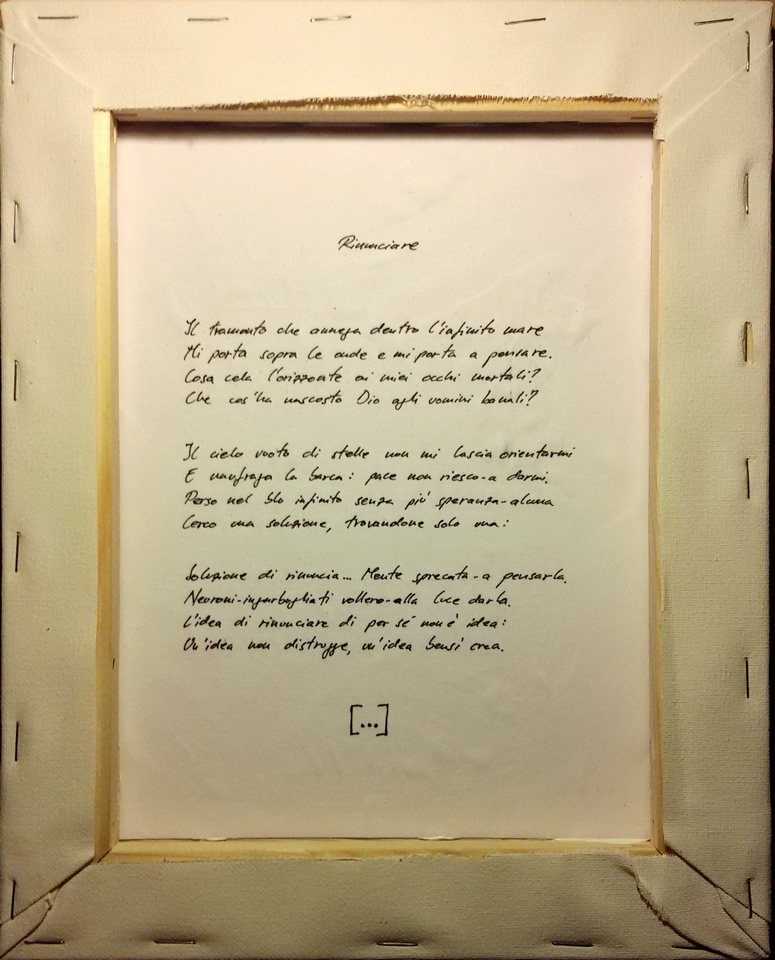 Rinunciare
Il tramonto che annega dentro l'infinito mare
Mi porta sopra le onde e mi porta a pensare.
Cosa cela l'orizzonte ai miei occhi mortali?
Che cos'ha nascosto Dio agli uomini banali?
Il cielo vuoto di stelle non mi lascia orientarmi
E naufraga la barca: pace non riesco-a darmi.
Perso nel blu infinito senza più speranza-alcuna
Cerco una soluzione, trovandone solo una:
Soluzione di rinuncia... Mente sprecata-a pensarla.
Neuroni-ingarbugliati vollero-alla luce darla.
L'idea di rinunciare di per sé non è idea:
Un'idea non distrugge, un'idea bensì crea.
[...]